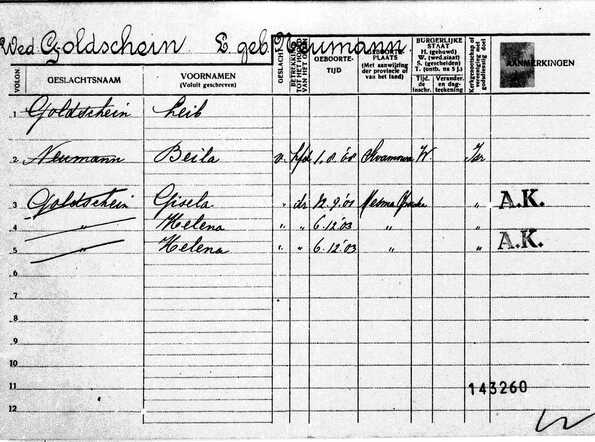 Wed Goldschein L geb. Neumann
VOLGN.
GESLACHTSNAAM
VOORNAMEN
(Voluit geschreven)
GESLACHT
GEBOORTE-
TIJD
GEBOORTE-
PLAATS
(Met aanwijzing
der provincie of
van het land)
BURGERLIJKE
STAAT
H. (gehuwd)
W. (wed.staat)
S. (gescheiden)
T. (ontb. na s.)
Tijd.
de
inschr.
Verander-
en dag-
teekening
Kerkgenootschap of
vereeniging met
godsdienstig doel
AANMERKINGEN
1 Goldschein Leib
2 Neumann Beila v. hfd 1.8.'68 W Isr
3 Goldstein Gisela " dr 12.9.'01 " A.K.
4 " Helena " " 6.12.'03 " "
5 " Helena " " 6.12.'03 " " A.K.
6
7
8
9
10
11 143260
12